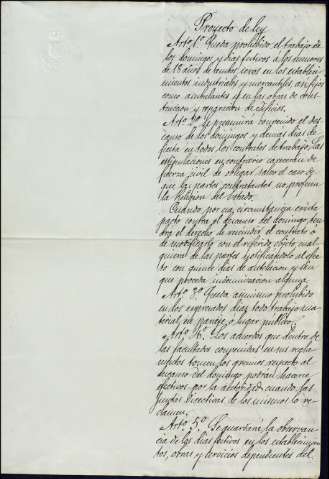 Proyecto de ley
Artº 1º Queda prohibido el trabajo de
los domingos y dias festivos a los menores
de 18 años de ambos sexos en los estableci-
mientos industriales y mercantiles, asi fijos
como ambulantes et en las obras de cons-
truccion y reparacion de edificios.
Artº 2º Se presumirá convenido el des-
canso de los domingos y demas dias de
fiesta en todos los contratos de trabajo; las
estipulaciones en contrario careceran de
fuerza civil de obligar, salvo el caso de
que las partes contratantes no profesen
la Religion del Estado.
Cuando por una circunstancia exista
pacto contra el descanso del domingo, ten-
drá el derecho de rescindir el contrato ó
de modificarlo con el referido objeto cual-
quiera de las partes notificandolo al efec-
to con quince dias de antelacion y sin
que proceda indemnizacion alguna.
Artº 3º Queda asimismo prohibido
en los expresados dias todo trabajo ma-
terial, en paraje ó lugar publico.
Artº 4º Los acuerdos que dentro de
las facultades consignadas en sus regla-
mentos tomen los gremios respecto al
descanso del domingo podrán hacerse
efectivos por la autoridad cuando las
Juntas Directivas de los mismos lo re-
clamen.
Artº 5º Se guardará la observan-
cia de los dias festivos en los establecimien-
tos, obras y servicios dependientes del